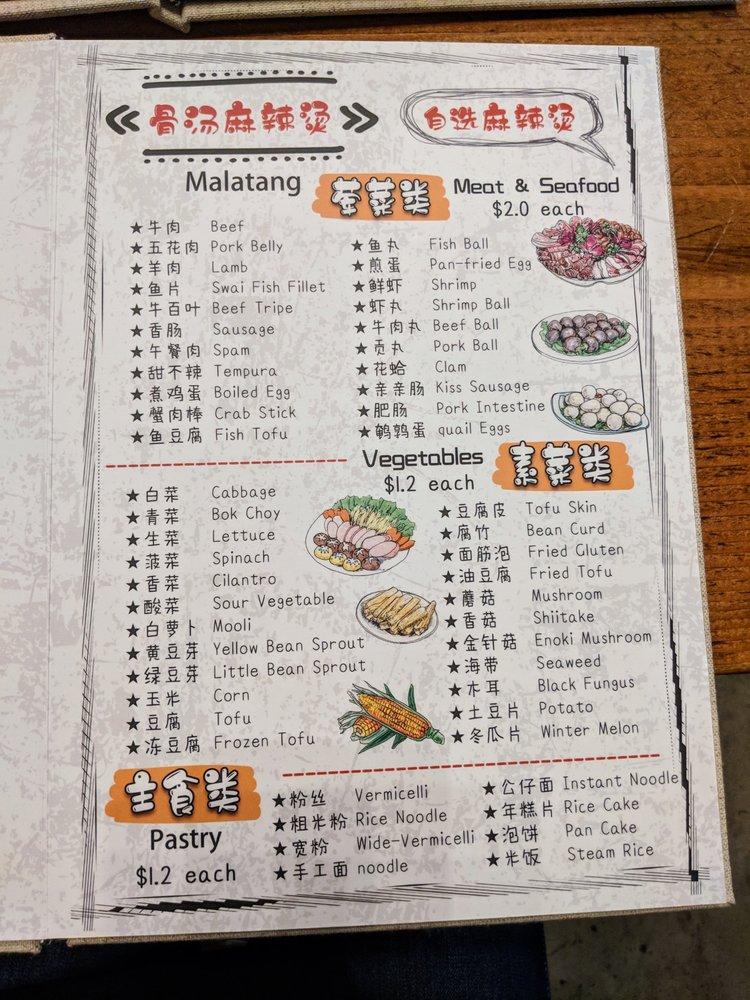 骨汤麻辣烫
自选麻辣烫
Malatang
荤菜类
Meat & Seafood
$2.0 each
★牛肉 Beef
★五花肉 Pork Belly
★羊肉 Lamb
★鱼片 Swai Fish Fillet
★牛百叶 Beef Tripe
★香肠 Sausage
★午餐肉 Spam
★甜不辣 Tempura
★煮鸡蛋 Boiled Egg
★蟹肉棒 Crab Stick
★鱼豆腐 Fish Tofu
★鱼丸 Fish Ball
★煎蛋 Pan-fried Egg
★鲜虾 Shrimp
★虾丸 Shrimp Ball
★牛肉丸 Beef Ball
★贡丸 Pork Ball
★花蛤 Clam
★亲亲肠 Kiss Sausage
★肥肠 Pork Intestine
★鹌鹑蛋 quail Eggs
Vegetables
$1.2 each
素菜类
★白菜 Cabbage
★青菜 Bok Choy
★生菜 Lettuce
★菠菜 Spinach
★香菜 Cilantro
★酸菜 Sour Vegetable
★白萝卜 Mooli
★黄豆芽 Yellow Bean Sprout
★绿豆芽 Little Bean Sprout
★玉米 Corn
★豆腐 Tofu
★冻豆腐 Frozen Tofu
★豆腐皮 Tofu Skin
★腐竹 Bean Curd
★面筋泡 Fried Gluten
★油豆腐 Fried Tofu
★蘑菇 Mushroom
★香菇 Shiitake
★金针菇 Enoki Mushroom
★海带 Seaweed
★木耳 Black Fungus
★土豆片 Potato
★冬瓜片 Winter Melon
主食类
Pastry
$1.2 each
★粉丝 Vermicelli
★粗米粉 Rice Noodle
★宽粉 Wide-Vermicelli
★手工面 noodle
★公仔面 Instant Noodle
★年糕片 Rice Cake
★泡饼 Pan Cake
★米饭 Steam Rice